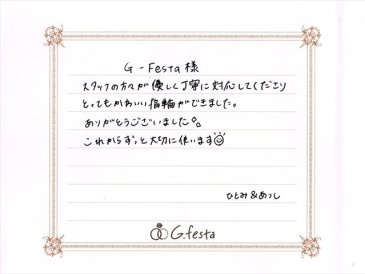 G-Festa様
スタッフの方々が優しく丁寧に対応してくださり
とってもかわいい指輪ができました。
ありがとうございました。
これからずっと大切に使います
ひとみ&あつし
G.festa